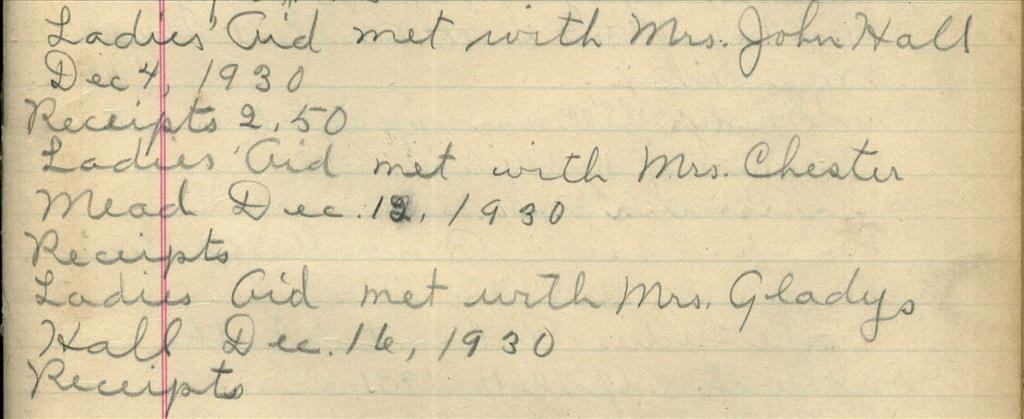 Ladies' Aid met with Mrs. John Hall
Dec 4, 1930
Receipts 2.50
Ladies' Aid met with Mrs. Chester
Mead Dec. 12, 1930
Receipts
Ladies Aid met with Mrs. Gladys
Hall Dec. 16, 1930
Receipts